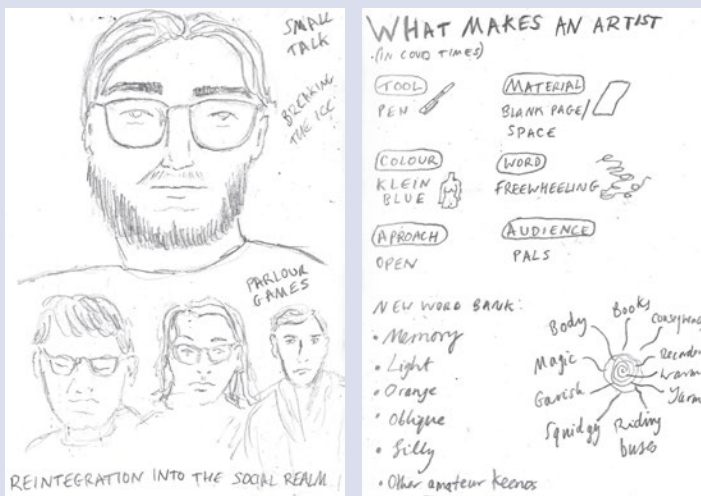 SMALL
TALK
BREAKING
THE ICE
PARLOUR
GAMES
REINTEGRATION INTO THE SOCIAL REALM
WHAT MAKES AN ARTIST
(IN COVID TIMES)
TOOL
PEN
MATERIAL
BLANK PAGE/
SPACE
COLOUR
KLEIN
BLUE
WORD
FREEWHEELING
APROACH
OPEN
AUDIENCE
PALS
NEW WORD BANK:
• Memory
• Light
• Orange
• Oblique
• Silly
• Other amateur keenos
Body
Books
Magic
Garish
Squidgy
Riding
buses